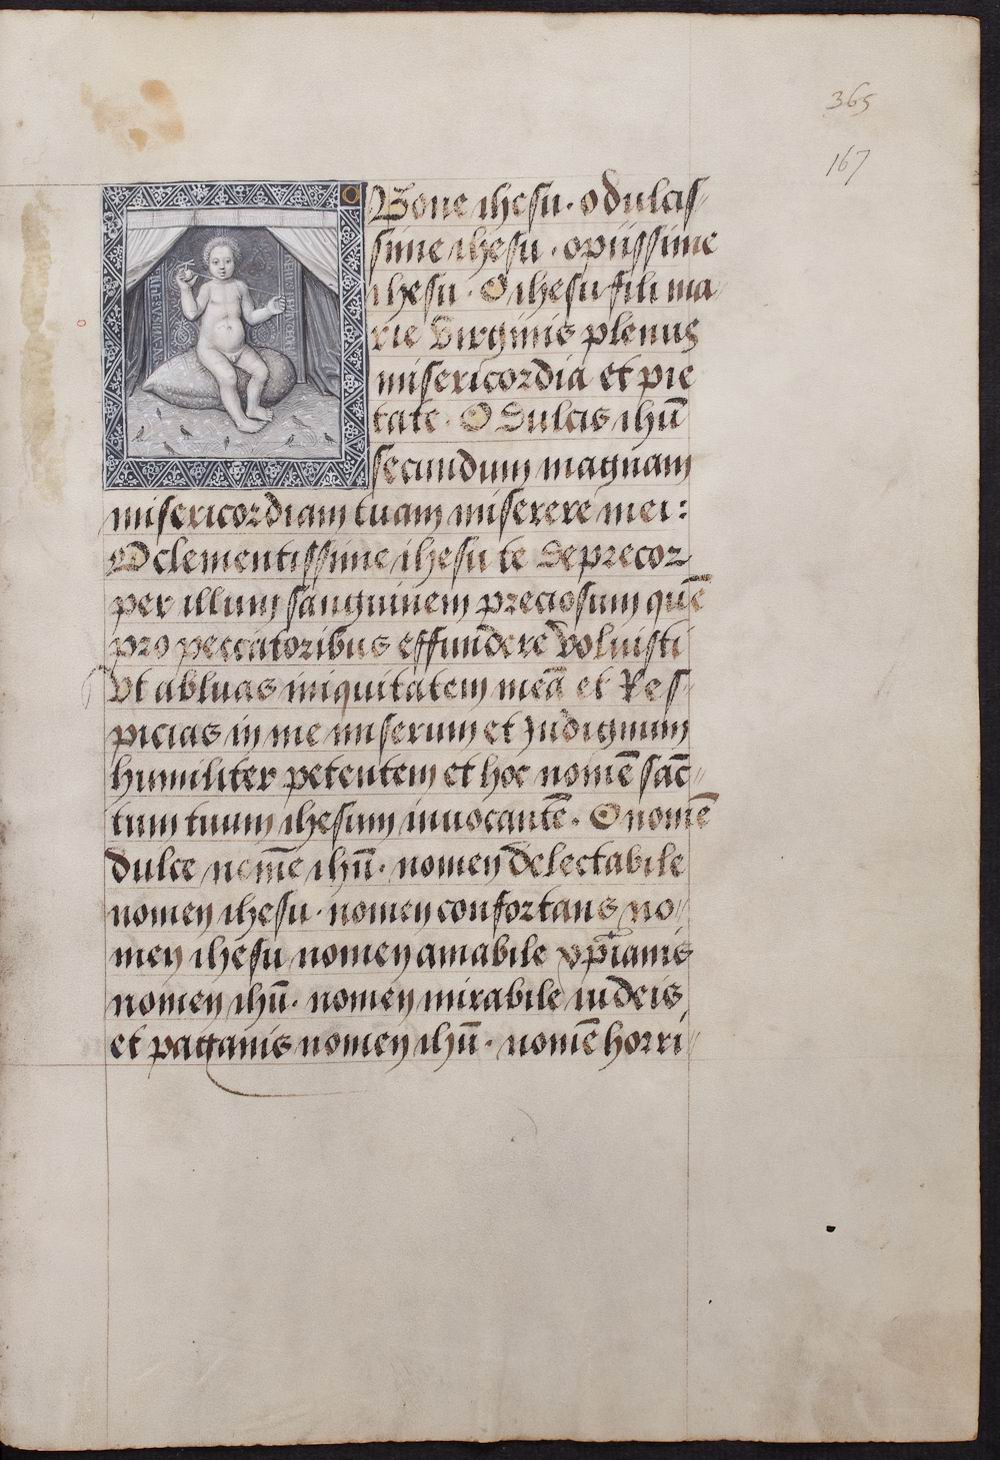 365
167
O Bone ihesu · o dulcis-
sime ihesu · o piissime
ihesu · O ihesu fili ma-
rie virginis plenus
misericordia et pie
tate · O Dulcis ihū
secundum magnam
misericordiam tuam miserere mei :
O clementissime ihesu te deprecor
per illum sanguinem preciosum quē
pro peccatoribus effundere voluisti
Vt abluas iniquitatem meā et Res-
picias in me miserum et Indignum
humiliter petentem et hoc nomē sāc-
tum tuum ihesum inuocantē · O nomē
dulce nomē ihū · nomen delectabile
nomen ihesu · nomen confortans no-
men ihesu nomen amabile xp̄ianis
nomen ihū · nomen mirabile iudeis
et paganis nomen ihū · nomē horri-